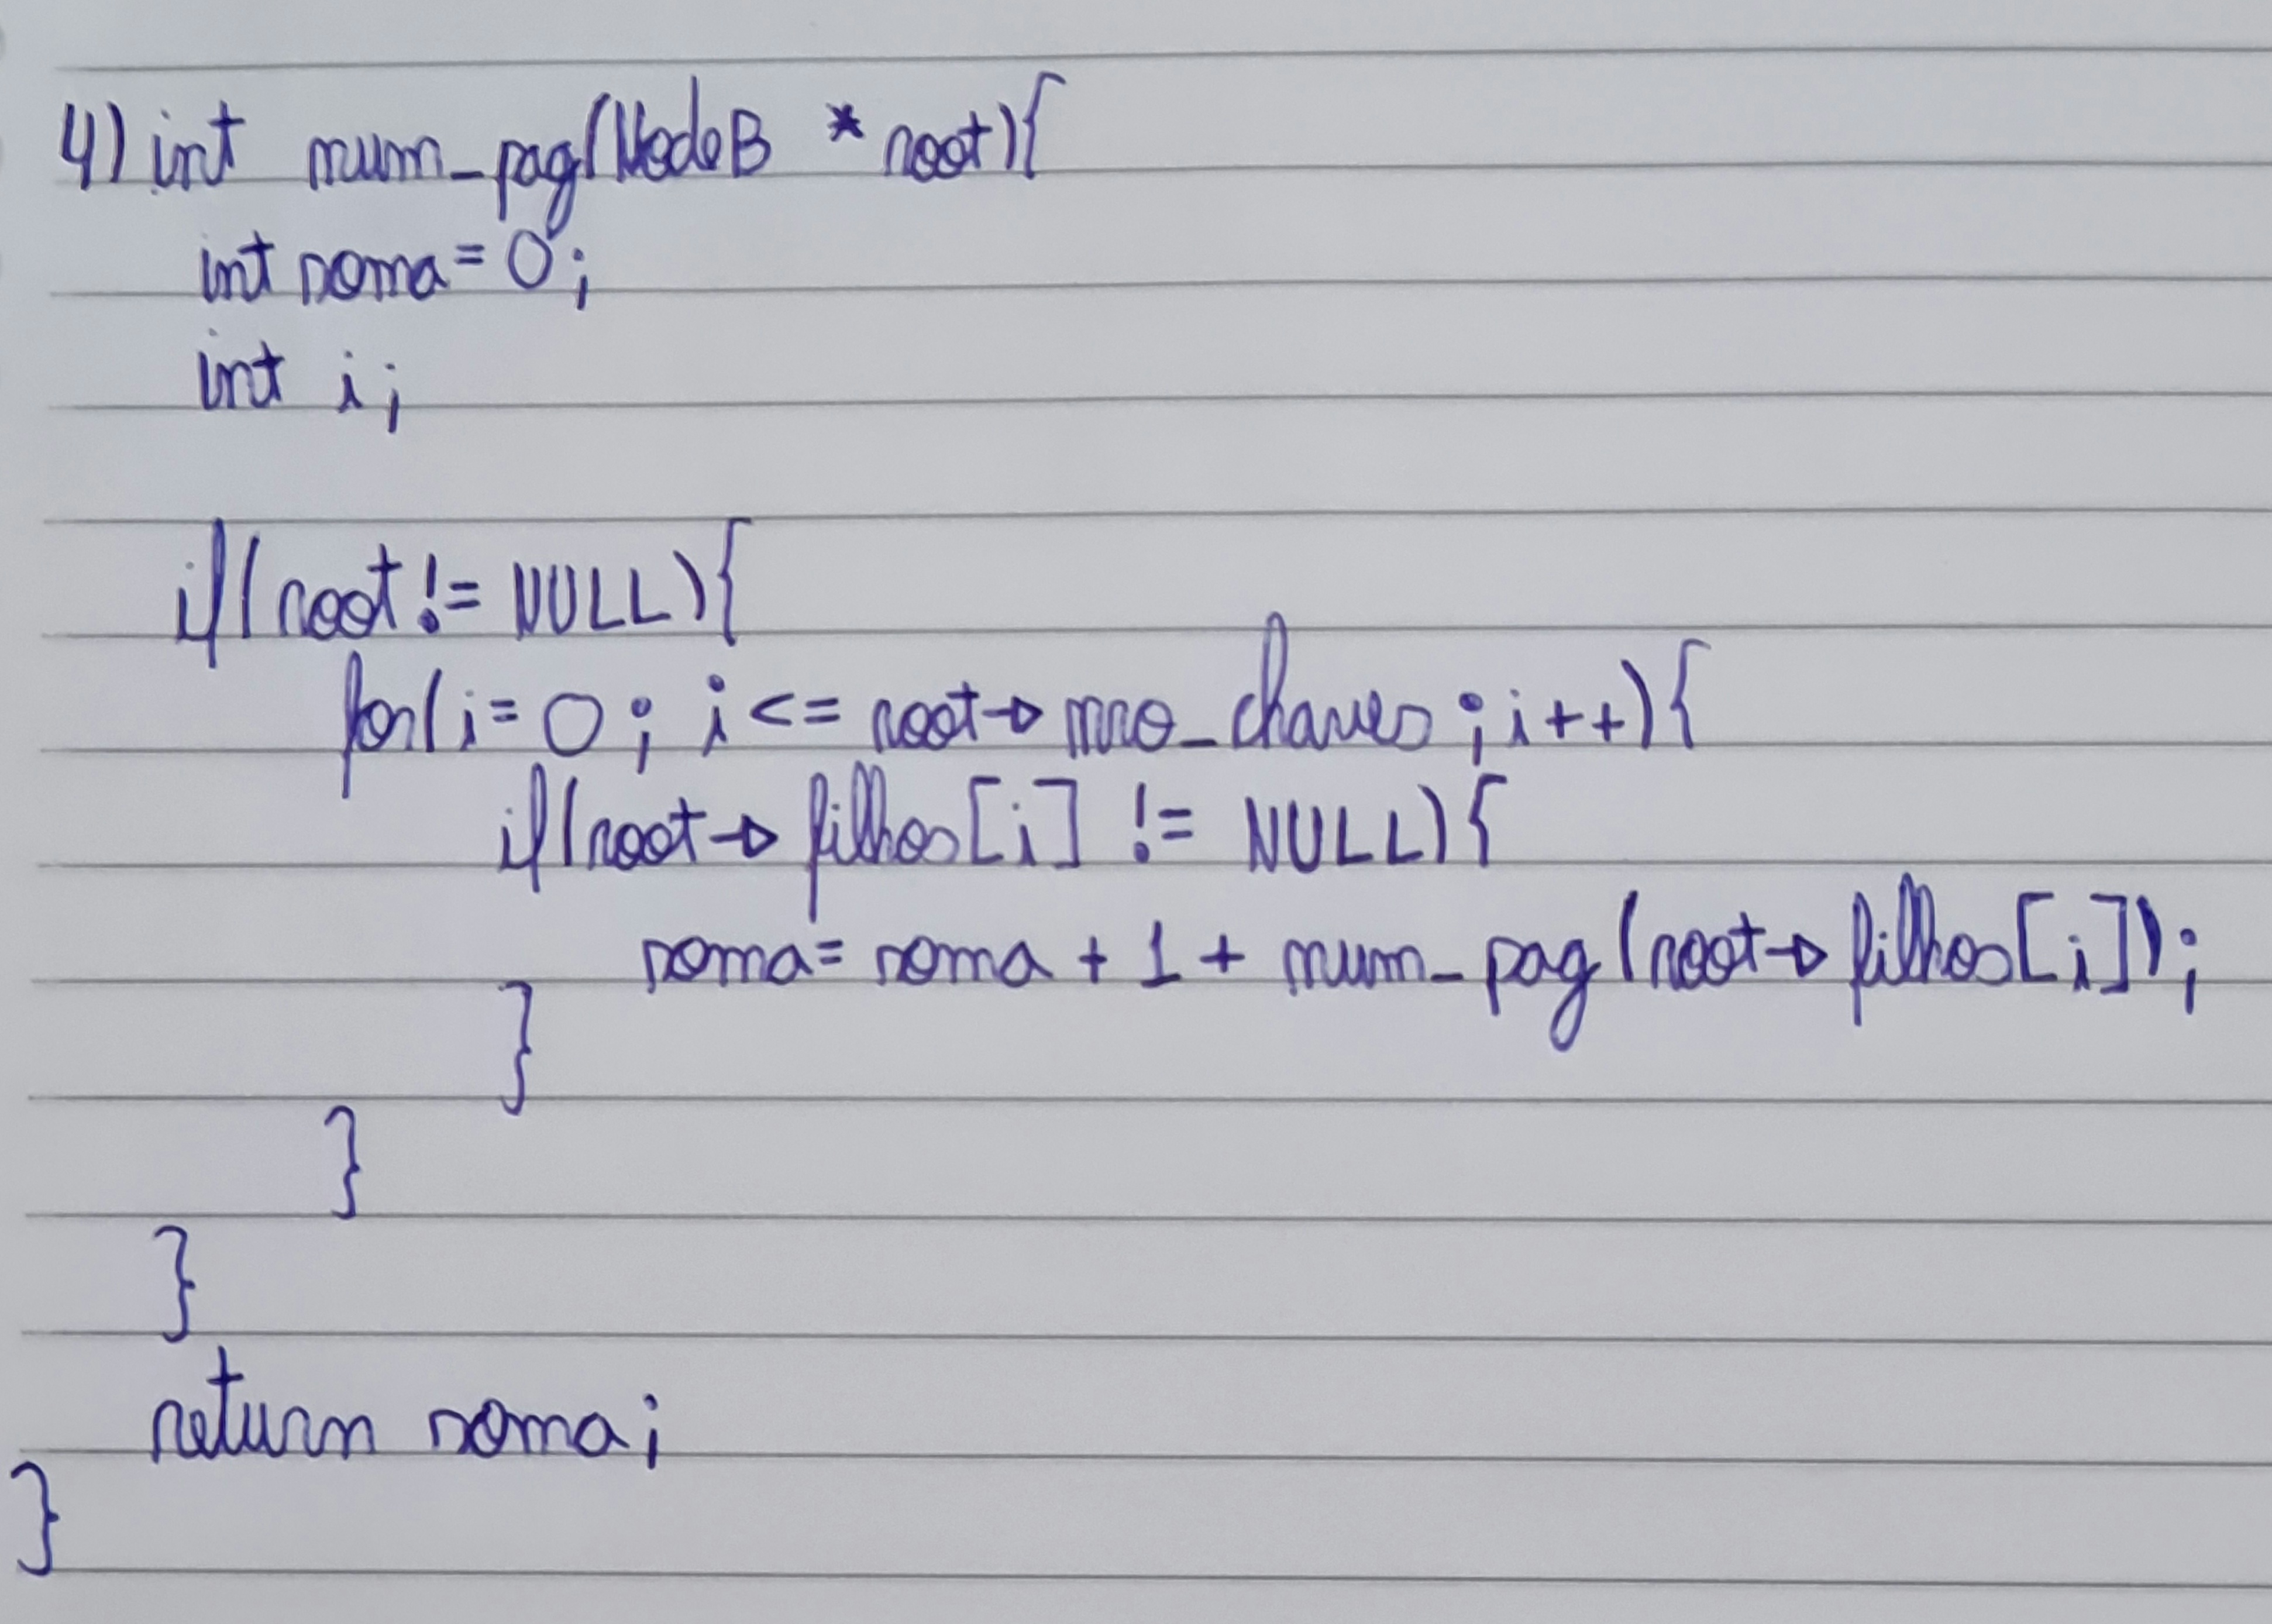 4) int num_pag(NodeB * root){
int soma = 0;
int i;
if(root != NULL){
for(i = 0; i <= root-> nro_chaves; i++){
if(root-> filhos[i] != NULL){
soma = soma + 1 + num_pag(root-> filhos[i]);
}
}
}
return soma;
}